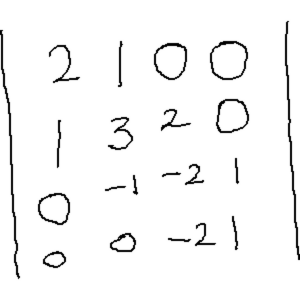 | 2 1 0 0 |
| 1 3 2 0 |
| 0 -1 -2 1 |
| 0 0 -2 1 |